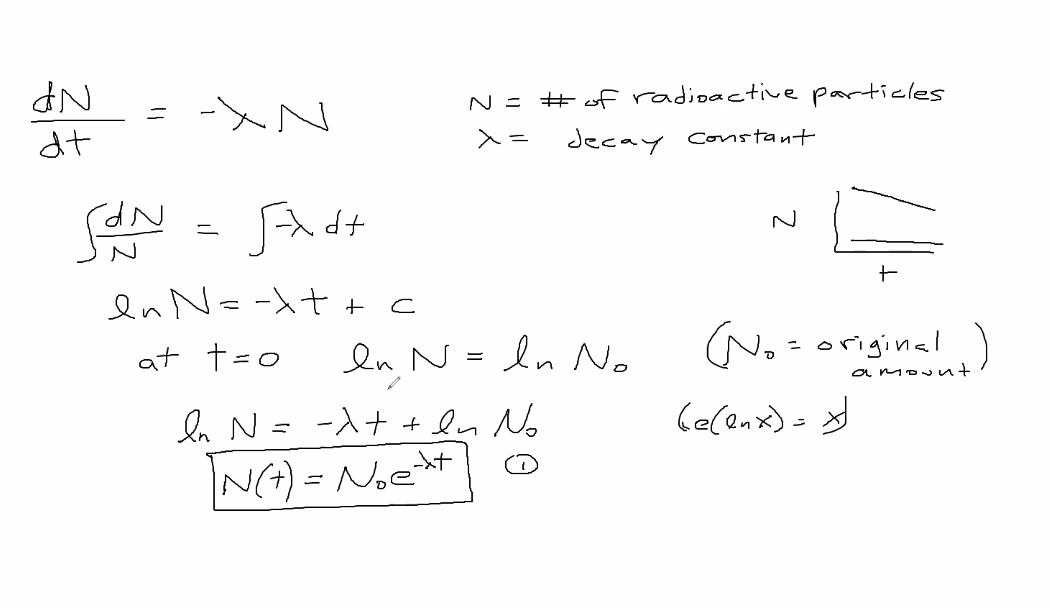 dN/dt = -λN
N = # of radioactive particles
λ = decay constant
∫dN/N = ∫-λ dt
N
t
ln N = -λt + c
at t=0 ln N = ln N₀ (N₀ = original amount)
ln N = -λt + ln N₀ (e(lnx) = x)
N(t) = N₀e^-λt ①